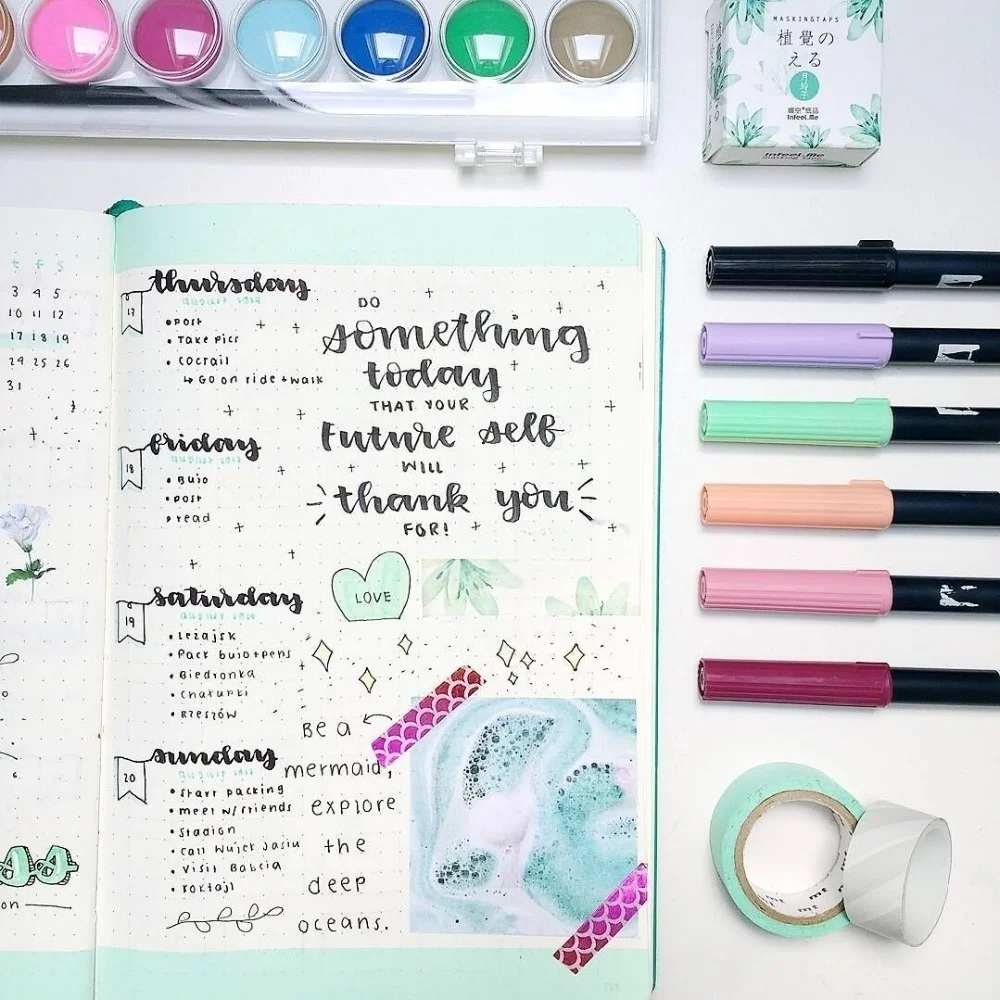 MASKINGTAPS
植覺の
える
月玲子
Infeel.Me
Infeel.Me
masking tape
t f s
3 4 5
10 11 12
17 18 19
24 25 26
31
6
thursday
august 2017
17
• post
• Take pics
• cocktail
↳ Go on ride + walk
friday
august 2017
18
• Bujo
• post
• read
saturday
19
• Leżajsk
• Pack bujo+pens
• Biedronka
• Chałupki
• Rzeszów
sunday
august 2017
20
• start packing
• meet w/friends
• Stadion
• call Wujek Jasiu
• Visit Babcia
• koktajl
DO
something
today
THAT YOUR
Future self
WILL
thank you
FOR!
LOVE
Be a
mermaid,
explore
the
deep
oceans.
mt